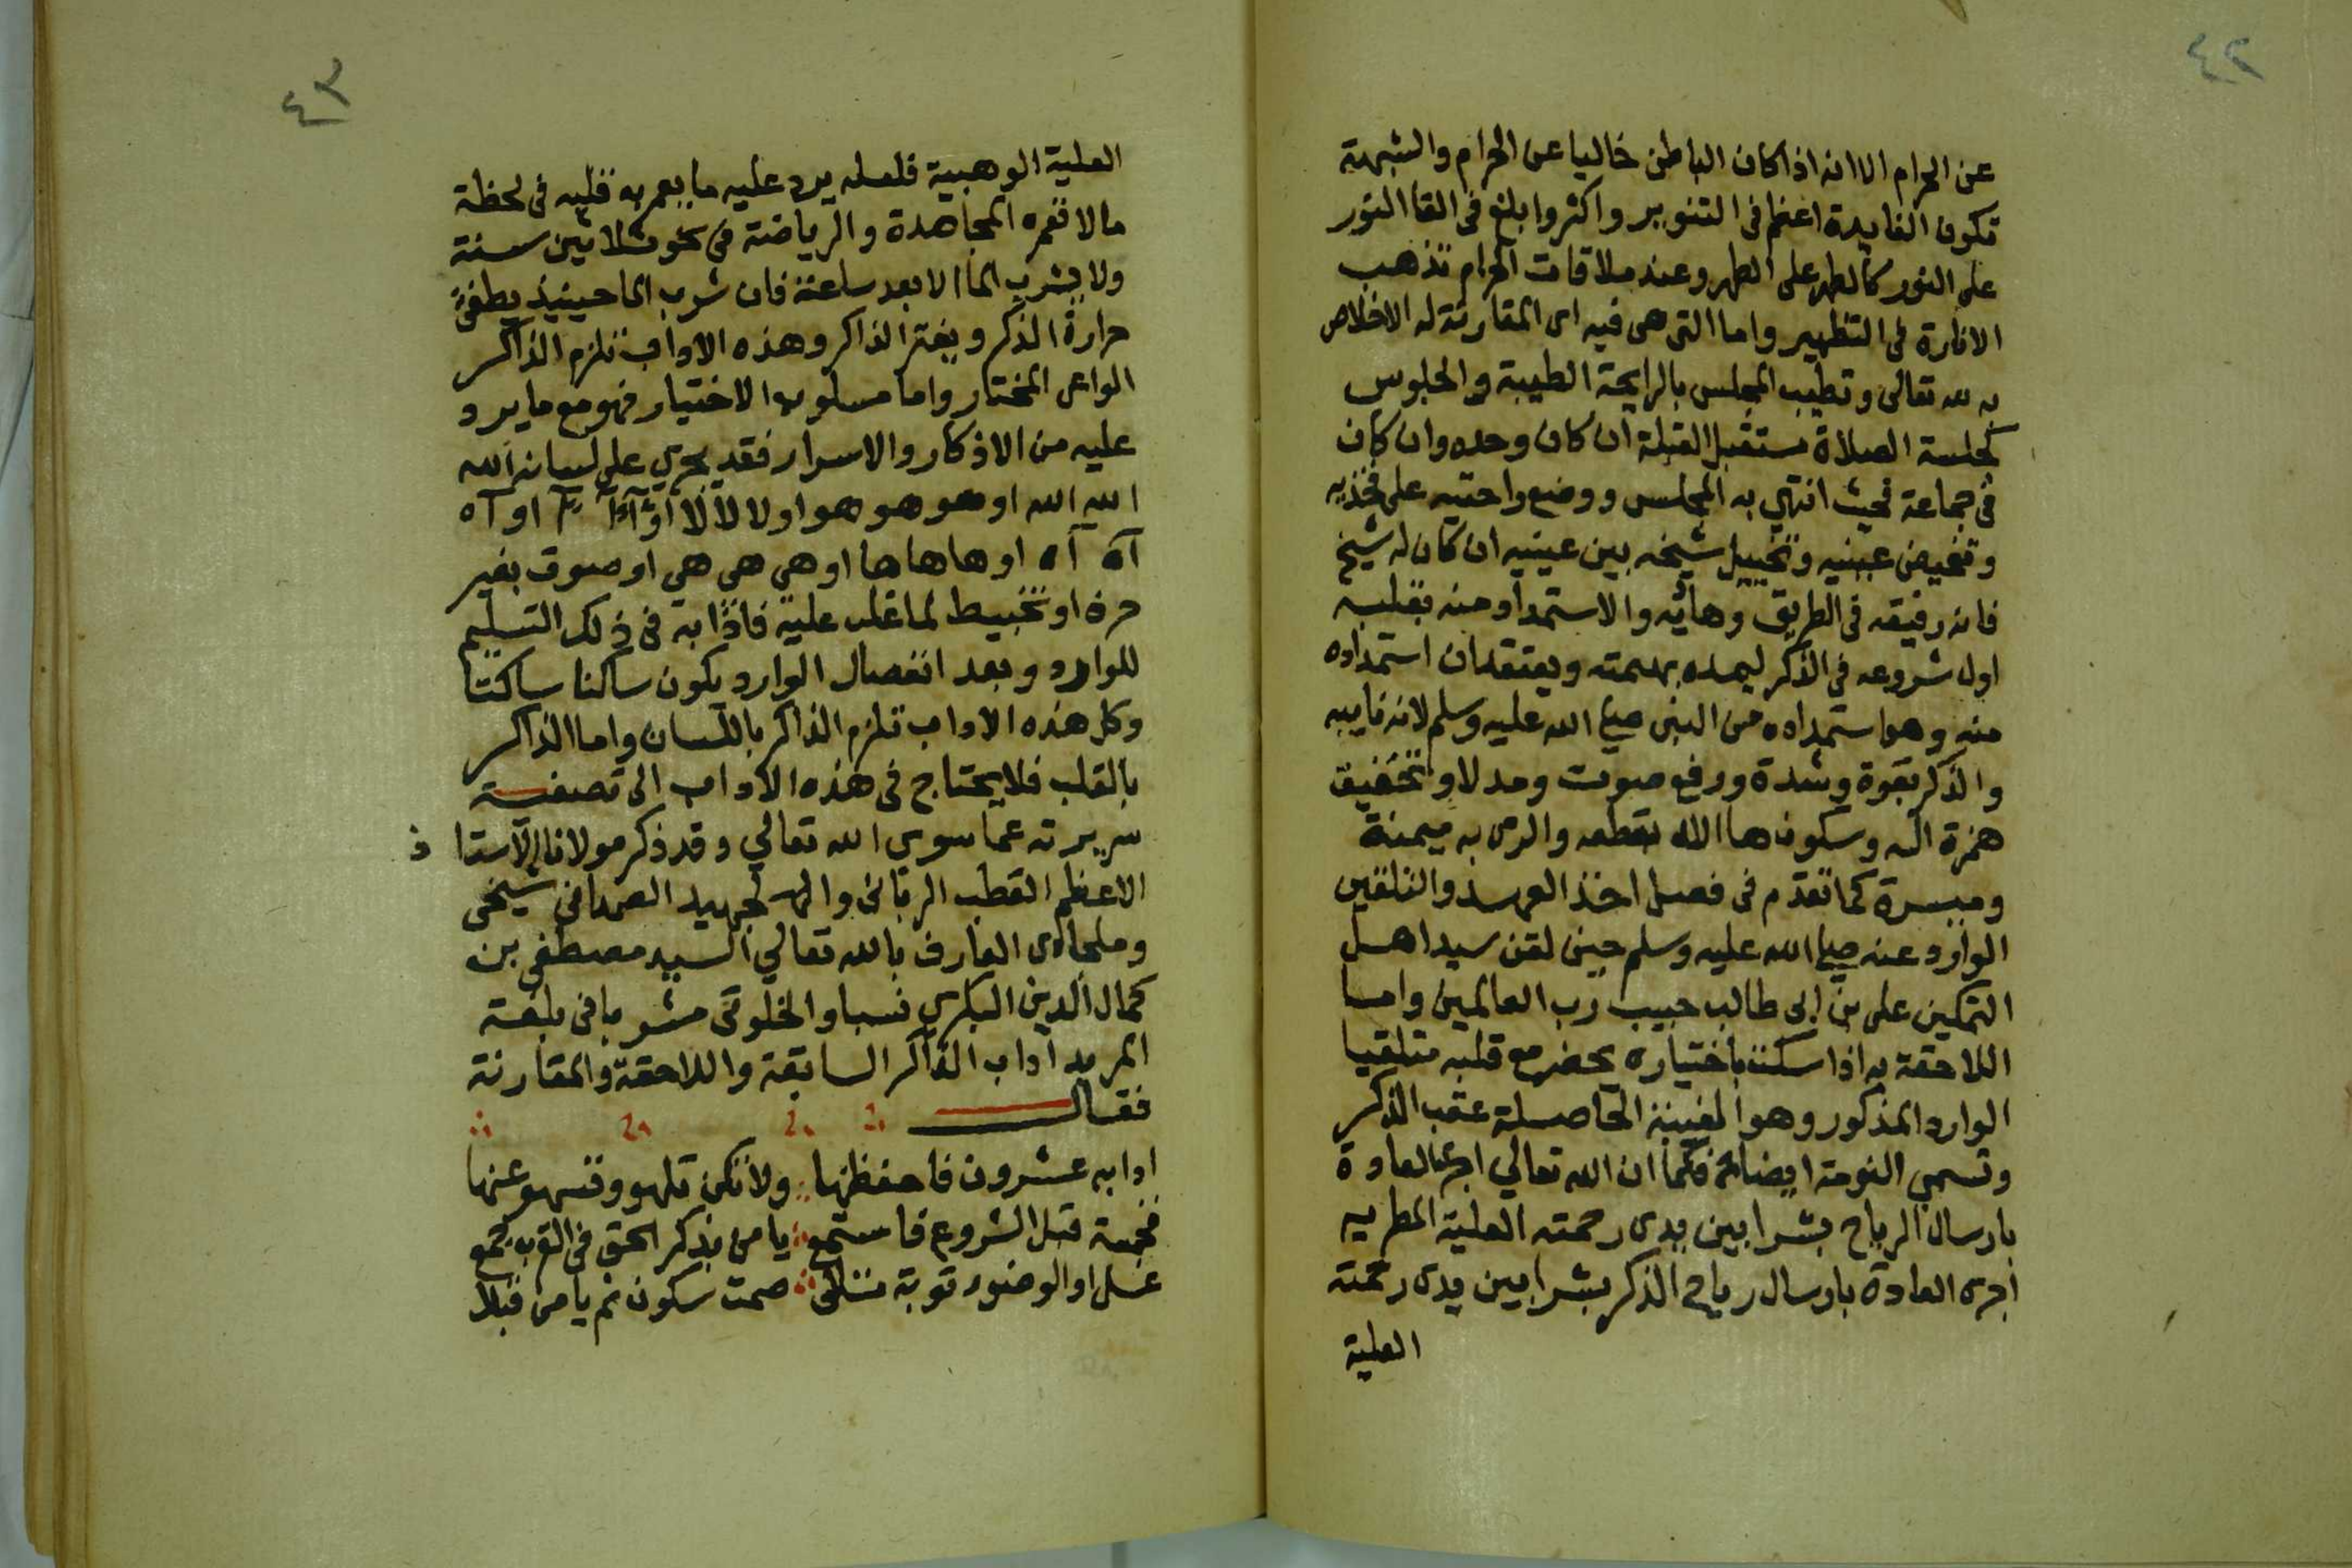 ٤٢
عن الحرام الا انه اذا كان الباطن خاليا عن الحرام والشبهة
تكون الفايدة اعظم فى التنوير واكثر وابلغ فى القا النور
على النور كالطهر على الطهر وعند ملاقات الحرام تذهب
الانارة فى التطهير واما التى هى فيه اى المقارنة له الاخلاص
به لله تعالى وتطيب المجلس بالرايحة الطيبة والجلوس
كجلسة الصلاة مستقبل القبلة ان كان وحده وان كان
فى جماعة فحيث انتهى به المجلس ووضع راحتيه على فخذيه
وتغميض عينيه وتخييل شيخه بين عينيه ان كان له شيخ
فانه رفيقه فى الطريق وهاديه والاستمداد منه بقلبه
اول شروعه فى الذكر ليمده بهمته ويعتقد ان استمداده
منه وهو استمداده من النبى صلى الله عليه وسلم لانه نايبه
والذكر بقوة وشدة ورفع صوت ومد لا وتحقيق
همزة اله وسكون ها الاله بقطعه والرمى به ميمنة
وميسرة كما تقدم فى فصل اخذ العهد والتلقين
الوارد عنه صلى الله عليه وسلم حين لقن سيد اهل
التمكين على بن ابى طالب حبيب رب العالمين واما
اللاحقة به اذا سكت باختياره يحضر مع قلبه متلقيا
الوارد المذكور وهو الغيبة الحاصلة عقب الذكر
وتسمى النومة ايضا فكما ان الله تعالي اجرى العادة
بارسال الرياح بشرا بين يدى رحمته العلية المطرية
اجرى العادة بارسال رياح الذكر بشرا بين يدى رحمته
العلية
٤٣
العلية الوهبية فلعله يرد عليه ما يعمر به قلبه فى لحظة
ما لا تعمره المجاهدة والرياضة فى نحو ثلاثين سنة
ولا يشرب الما الا بعد ساعة فان شرب الما حينيذ يطفئ
حرارة الذكر ويفتر الذاكر وهذه الاداب تلزم الذاكر
الواعى المختار واما مسلوب الاختيار فهو مع ما يرد
عليه من الاذكار والاسرار فقد يجري على لسانه الله
الله الله او هو هو هو او لا لا لا او آ آ آ او آه
آه آه او ها ها ها او هى هى هى او صوت بغير
حرف او تخبيط لما غلب عليه فادابه فى ذلك التسليم
للوارد وبعد انفصال الوارد يكون ساكنا ساكتا
وكل هذه الاداب تلزم الذاكر باللسان واما الذاكر
بالقلب فلا يحتاج فى هذه الاداب الى تصفية
سريرته عما سوى الله تعالي وقد ذكر مولانا الاستاذ
الاعظم القطب الربانى والجهبيد الصمدانى شيخى
وملجاى العارف بالله تعالي السيد مصطفى بن
كمال الدين البكرى نسبا والخلوتى مشربا فى بلغة
المريد آداب الذاكر السابقة واللاحقة والمقارنة
فقال
ادابه عشرون فاحفظنها ولا تكن تلهو وتسهو عنها
فخمسة قبل الشروع فاستمع يا من بذكر الحق فى القرب جمع
غسل او الوضو توبة صمت سكون ثم يا من